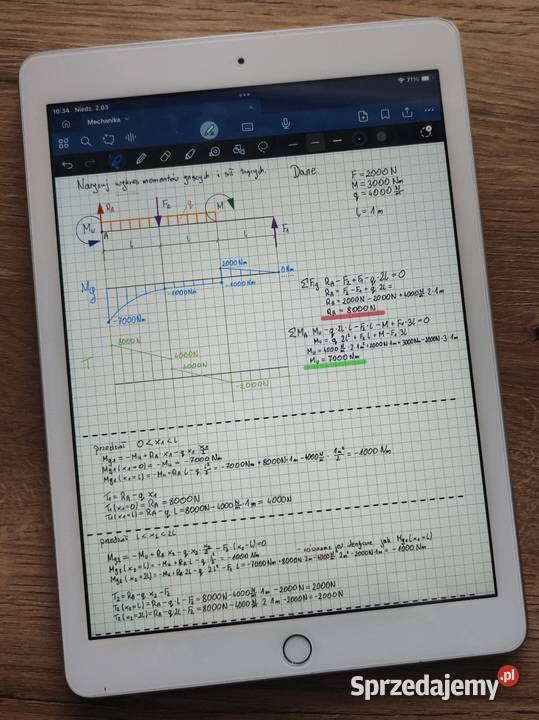 10:34 Niedz. 2.03
71%
Mechanika
Narysuj wykres momentów gnących i sił tnących.
Dane
F = 2000N
M = 3000 Nm
q = 4000 N/m
l = 1m
RA
F2
q
M
Mu
A
l
l
l
F1
Mg
2000Nm
0Nm
-1000Nm
-1000Nm
-7000Nm
8000N
4000N
2000N
-2000N
RA - F2 + F1 - q·2l = 0
RA = F2 - F1 + q·2l =
RA = 2000N - 2000N + 4000 N/m · 2·1m
RA = 8000N
ΣMA: Mu - q·2l·l - F2·l - M + F1·3l = 0
Mu = q·2l² + F2·l + M - F1·3l
Mu = 4000 N/m · 2·1m² + 2000N·1m + 3000Nm - 2000N·3·1m
Mu = 7000Nm
przedział 0 < x1 < l
Mg1 = -Mu + RA·x1 - q·x1·x1/2
Mg1(x1=0) = -Mu = -7000Nm
Mg1(x1=l) = -Mu + RA·l - q·l²/2 = -7000Nm + 8000N·1m - 4000 N/m · 1m²/2 = -1000Nm
T1 = RA - q·x1
T1(x1=0) = RA = 8000N
T1(x1=l) = RA - q·l = 8000N - 4000 N/m · 1m = 4000N
przedział l < x2 < 2l
Mg2 = -Mu + RA·x2 - q·x2·x2/2 - F2·(x2-l) = 0
Mg2(x2=l) = -Mu + RA·l - q·l²/2 = -1000Nm - równanie jest identyczne jak Mg1(x1=l)
Mg2(x2=2l) = -Mu + RA·2l - q·2l² - F2·l = -7000Nm + 8000N·2m - 4000 N/m · 2m² - 2000N·1m = -1000Nm
T2 = RA - q·x2 - F2
T2(x2=l) = RA - q·l - F2 = 8000N - 4000 N/m · 1m - 2000N = 2000N
T2(x2=2l) = RA - q·2l - F2 = 8000N - 4000 N/m · 2·1m - 2000N = -2000N
Sprzedajemy.pl